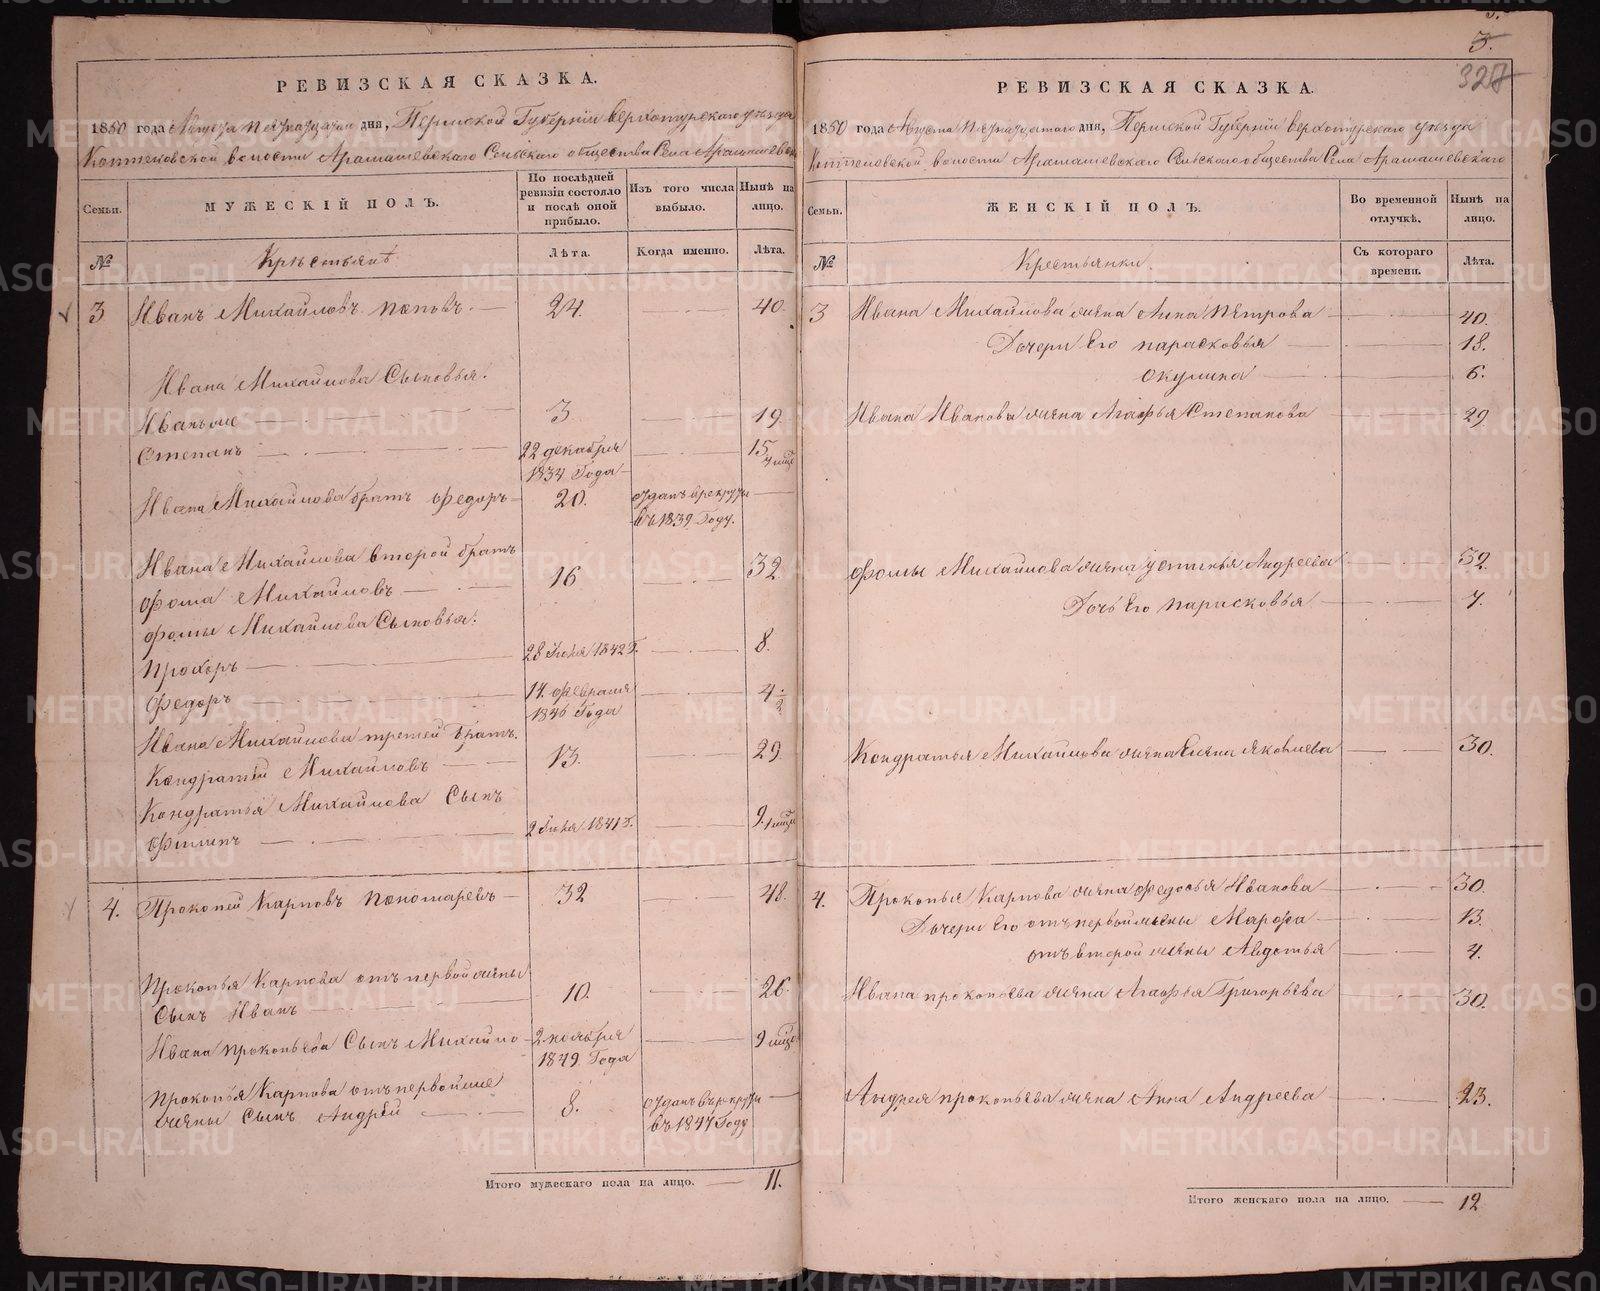 РЕВИЗСКАЯ СКАЗКА.
1850 года Августа пятнатцатаго дня, Пермской Губернiи Верхотурскаго уѣзда
Коптеловской волости Арамашевскаго Сельскаго общества Села Арамашевскаго
Семьи.
МУЖЕСКІЙ ПОЛЪ.
По послѣдней ревизіи состояло и послѣ оной прибыло.
Изъ того числа выбыло.
Нынѣ на лицо.
№
Крестьянѣ
Лѣта.
Когда именно.
Лѣта.
3 Иванъ Михайловъ поповъ. 24. 40.
Ивана Михайлова Сыновья:
Иванъ же 3 19.
Степанъ 22 декабря 1834 Года 15
Ивана Михайлова братъ Федоръ 20. отданъ в рекруты въ 1839. Году.
Ивана Михайлова второй братъ
Фома Михайловъ 16 32.
Фомы Михайлова Сыновья:
Прохоръ 28 Iюля 1842 Г. 8.
Федоръ 14. Февраля 1846 Года 4 1/2
Ивана Михайлова третей братъ.
Кондратей Михайловъ 13. 29
Кондратья Михайлова Сынъ
Филипъ 2 Iюля 1841 Г. 9.
4. Прокопей Карповъ Пономаревъ 32 48.
Прокопья Карпова отъ первой жены
Сынъ Иванъ 10. 26.
Ивана прокопьева Сынъ Михайло 2 ноября 1849. Года 9
Прокопья Карпова отъ первой же
жены Сынъ Андрей 8. отданъ в рекруты въ 1847 Году
Итого мужескаго пола на лицо. 11.
3.
328
РЕВИЗСКАЯ СКАЗКА.
1850 года Августа пятнатцатаго дня, Пермской Губернiи Верхотурскаго уѣзда
Коптеловской волости Арамашевскаго Сельскаго общества Села Арамашевскаго
Семьи.
ЖЕНСКІЙ ПОЛЪ.
Во временной отлучкѣ.
Нынѣ на лицо.
№
Крестьянки.
Съ котораго времени.
Лѣта.
3 Ивана Михайлова жена Анна Петрова 40.
Дочери Его парасковья 18.
окулина 6.
Ивана Иванова жена Агафья Степанова 29
Фомы Михайлова жена устинья Андреева 32.
Дочь Его парасковья 7.
Кондратья Михайлова жена Елена яковлева 30.
4. Прокопья Карпова жена федосья Иванова 30.
Дочери Его отъ первой жены Марфа 13.
отъ второй жены Авдотья 4.
Ивана прокопьева жена Агафья Григорьева 30.
Андрея прокопьева жена Анна Андреева 23.
Итого женскаго пола на лицо. 12
METRIKI.GASO-URAL.RU